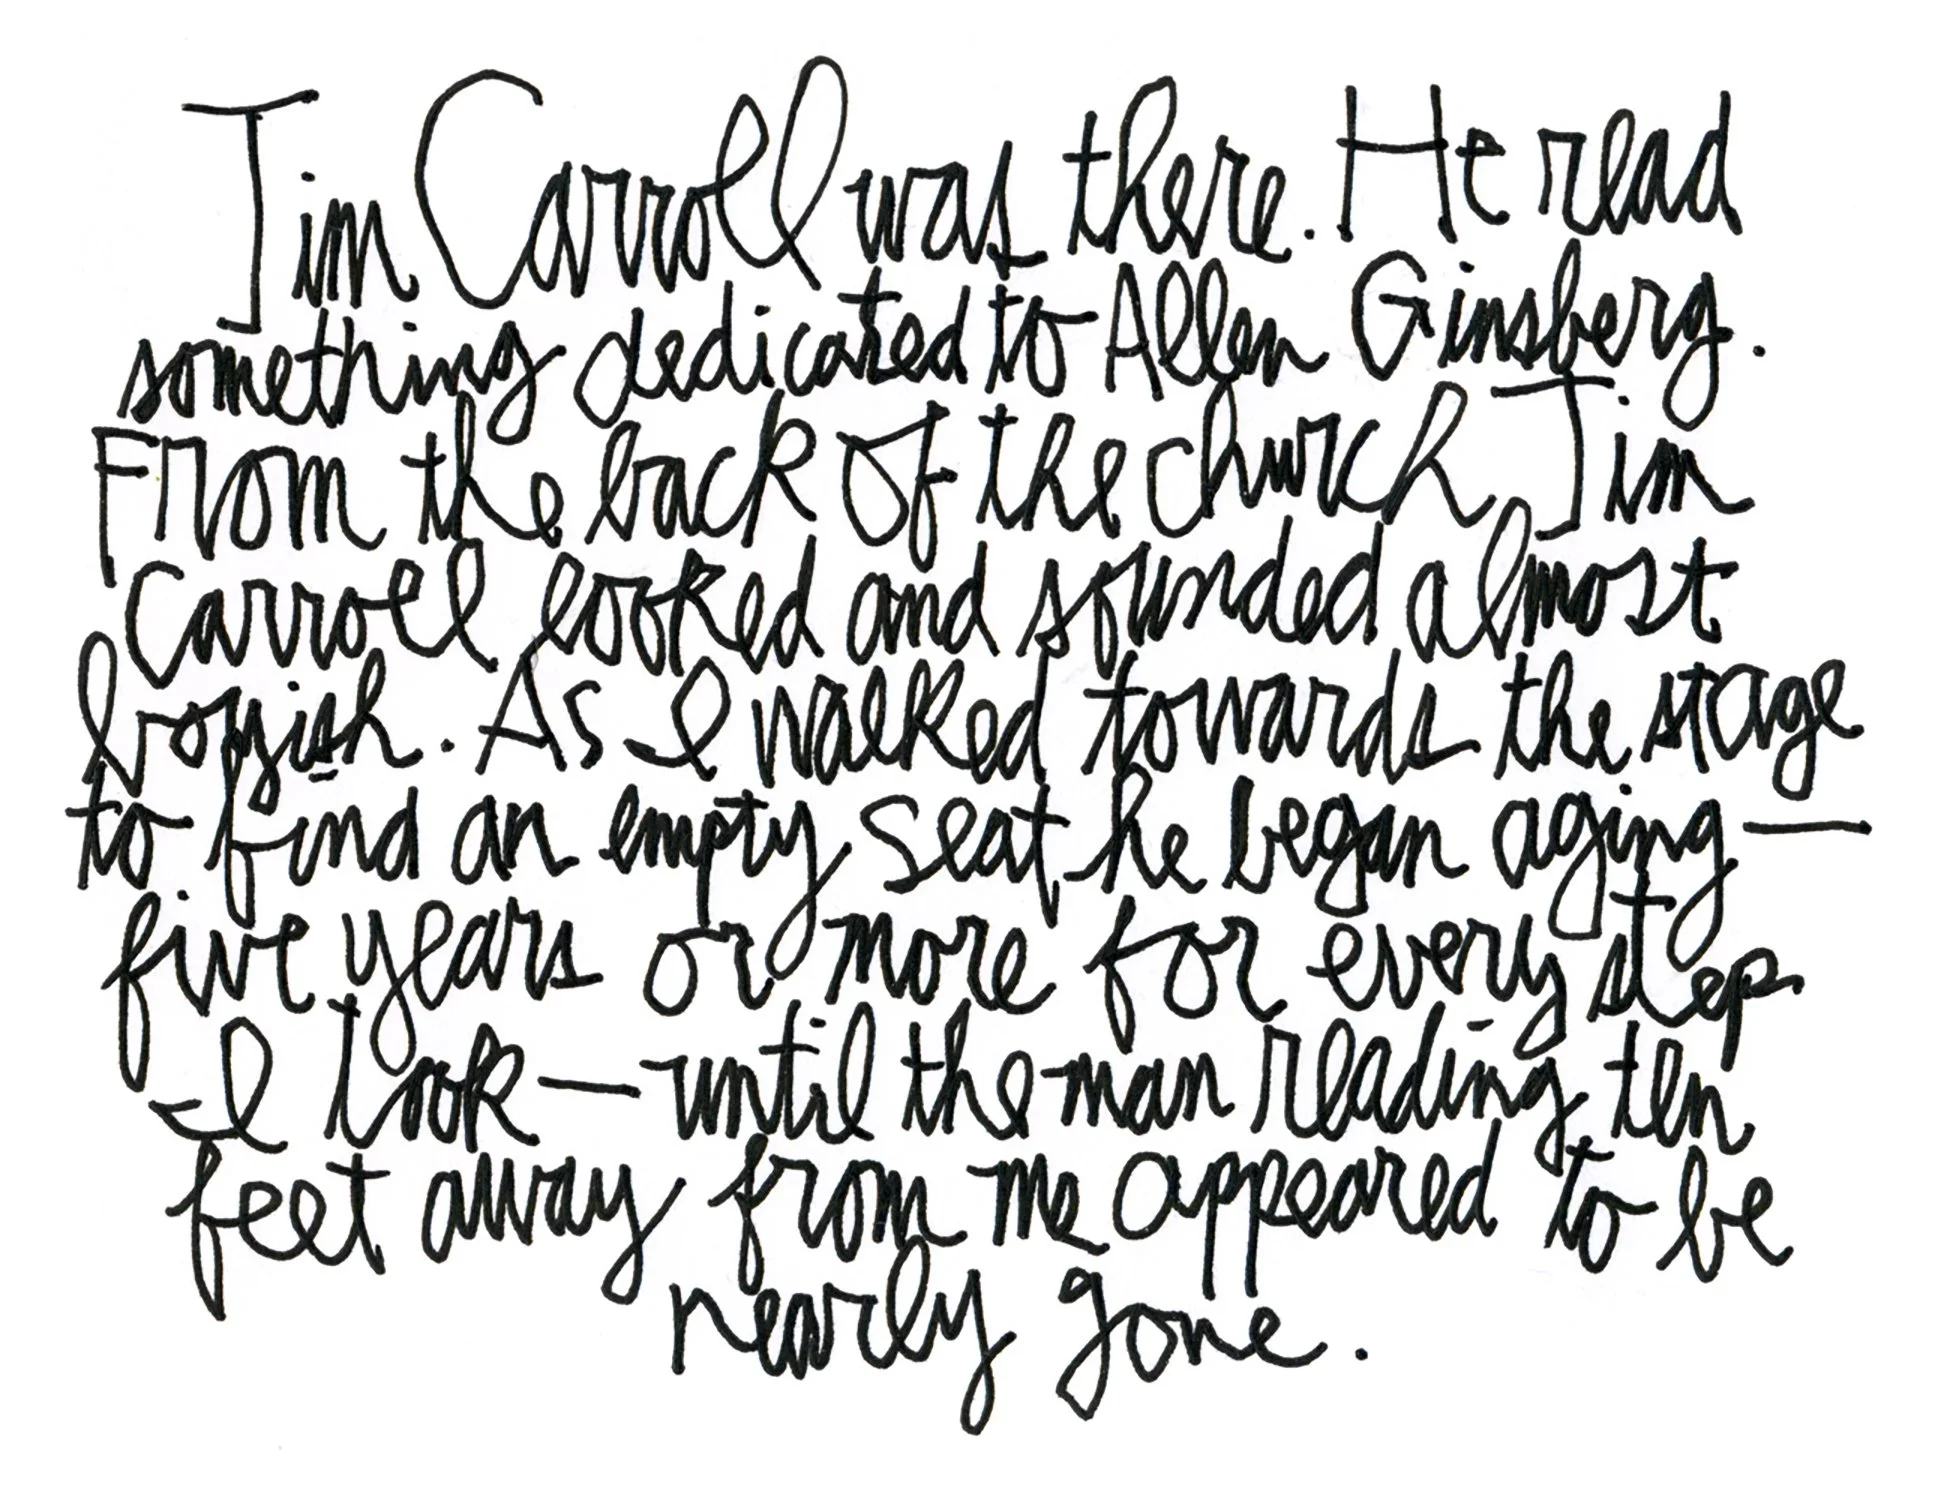 Jim Carroll was there. He read
something dedicated to Allen Ginsberg.
From the back of the church Jim
Carroll looked and sounded almost
boyish. As I walked towards the stage
to find an empty seat he began aging—
five years or more for every step
I took— until the man reading ten
feet away from me appeared to be
nearly gone.